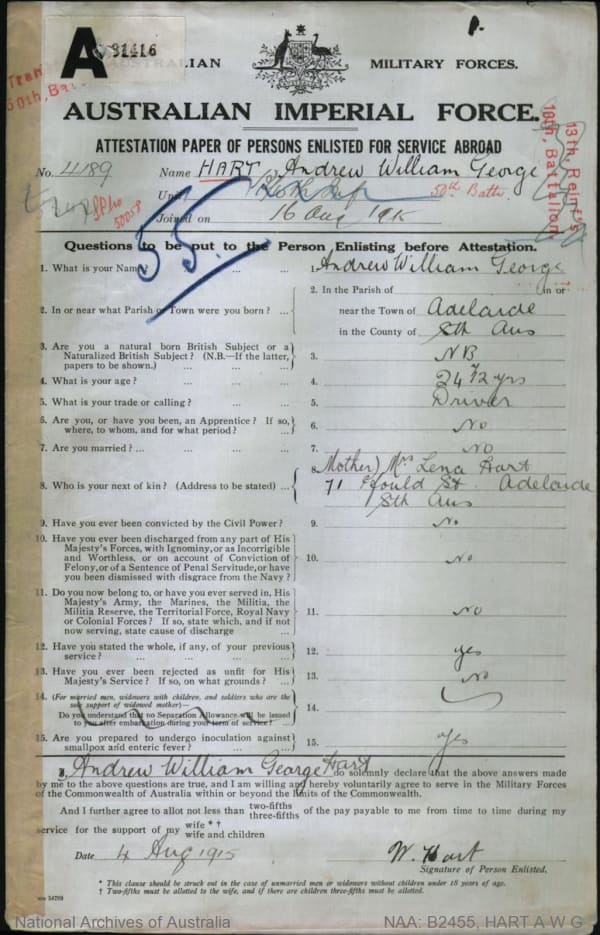 A 31416
LIAN MILITARY FORCES.
AUSTRALIAN IMPERIAL FORCE.
Tran
50th, Bat
13th, Reint's
10th, Battalion
ATTESTATION PAPER OF PERSONS ENLISTED FOR SERVICE ABROAD
No. 4189 Name HART Andrew William George
Unit 50th Battn.
Joined on 16 Aug 1915
55.
Questions to be put to the Person Enlisting before Attestation.
1. What is your Name? ... ... 1. Andrew William George
2. In or near what Parish or Town were you born? ... 2. In the Parish of in or
near the Town of Adelaide
in the County of Sth Aus
3. Are you a natural born British Subject or a
Naturalized British Subject? (N.B.—If the latter,
papers to be shown.) ... ... 3. NB
4. What is your age? ... ... ... 4. 24 1/2 yrs
5. What is your trade or calling? ... ... 5. Driver
6. Are you, or have you been, an Apprentice? If so,
where, to whom, and for what period? ... 6. No
7. Are you married? ... ... ... 7. NO
8. Who is your next of kin? (Address to be stated) ... 8. Mother) Mrs Lena Hart
71 Gould St. Adelaide
Sth Aus
9. Have you ever been convicted by the Civil Power? 9. No
10. Have you ever been discharged from any part of His
Majesty's Forces, with Ignominy, or as Incorrigible
and Worthless, or on account of Conviction of
Felony, or of a Sentence of Penal Servitude, or have
you been dismissed with disgrace from the Navy? 10. No
11. Do you now belong to, or have you ever served in, His
Majesty's Army, the Marines, the Militia, the
Militia Reserve, the Territorial Force, Royal Navy
or Colonial Forces? If so, state which, and if not
now serving, state cause of discharge ... 11. NO
12. Have you stated the whole, if any, of your previous
service? ... ... ... ... 12. yes
13. Have you ever been rejected as unfit for His
Majesty's Service? If so, on what grounds? ... 13. No
14. (For married men, widowers with children, and soldiers who are the
sole support of widowed mother)—
Do you understand that no Separation Allowance will be issued
to you after embarkation during your term of service? ... 14.
15. Are you prepared to undergo inoculation against
smallpox and enteric fever? ... ... 15. yes
I, Andrew William George Hart do solemnly declare that the above answers made
by me to the above questions are true, and I am willing and hereby voluntarily agree to serve in the Military Forces
of the Commonwealth of Australia within or beyond the limits of the Commonwealth.
And I further agree to allot not less than two-fifths
three-fifths of the pay payable to me from time to time during my
service for the support of my wife * †
wife and children
Date 4 Aug 1915 W. Hart
Signature of Person Enlisted.
* This clause should be struck out in the case of unmarried men or widowers without children under 18 years of age.
† Two-fifths must be allotted to the wife, and if there are children three-fifths must be allotted.
National Archives of Australia NAA: B2455, HART A W G